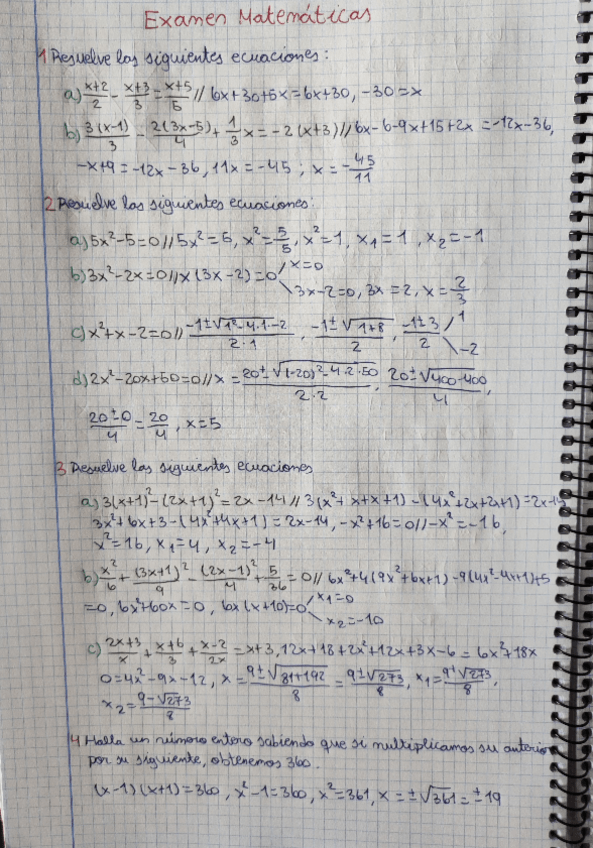 Examen Matemáticas
1 Resuelve las siguientes ecuaciones:
a) (x+2)/2 - (x+3)/3 = (x+5)/5 // 6x+30+5x=6x+30, -30=x
b) 3(x-1)/3 - 2(3x-5)/4 + 1/3 x = -2(x+3) // 6x-6-9x+15+2x = -12x-36,
-x+9=-12x-36, 11x=-45; x=-45/11
2 Resuelve las siguientes ecuaciones:
a) 5x²-5=0 // 5x²=5, x²=5/5, x²=1, x₁=1, x₂=-1
b) 3x²-2x=0 // x(3x-2)=0 x=0
3x-2=0, 3x=2, x=2/3
c) x²+x-2=0 // (-1±√(1²-4·1·-2))/(2·1), (-1±√(1+8))/2, (-1±3)/2 1
-2
d) 2x²-20x+50=0 // x=(20±√((-20)²-4·2·50))/(2·2), (20±√(400-400))/4,
(20±0)/4=20/4, x=5
3 Resuelve las siguientes ecuaciones
a) 3(x+1)²-(2x+1)²=2x-14 // 3(x²+x+x+1)-(4x²+2x+2x+1)=2x-14
3x²+6x+3-(4x²+4x+1)=2x-14, -x²+16=0 // -x²=-16,
x²=16, x₁=4, x₂=-4
b) x²/6 + (3x+1)²/9 - (2x-1)²/4 + 5/36 = 0 // 6x²+4(9x²+6x+1)-9(4x²-4x+1)+5
=0, 6x²+60x=0, 6x(x+10)=0 x₁=0
x₂=-10
c) (2x+3)/x + (x+6)/3 + (x-2)/2x = x+3, 12x+18+2x²+12x+3x-6=6x²+18x
0=4x²-9x-12, x=(9±√(81+192))/8=(9±√273)/8, x₁=(9+√273)/8,
x₂=(9-√273)/8
4 Halla un número entero sabiendo que si multiplicamos su anterior
por su siguiente, obtenemos 360.
(x-1)(x+1)=360, x²-1=360, x²=361, x=±√361=±19